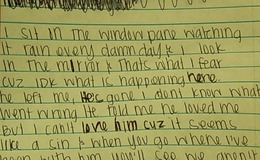 I sit In The window pane watching
It rain every damn day & I look
In The mirror & Thats what I fear
cuz Idk what is happening here.
he left me, Hes gone I dont know what
went wrong He told me he loved me
But I can't love him cuz it seems
like a sin & when you go where I've
been with him you'll see